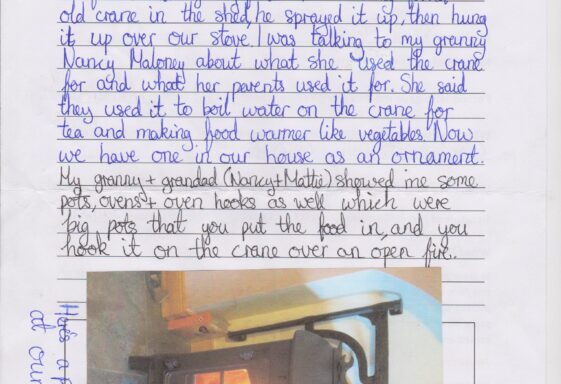 old crane in the shed, he sprayed it up, then hung
it up over our stove. I was talking to my granny
Nancy Maloney about what she used the crane
for and what her parents used it for. She said
they used it to boil water on the crane for
tea and making food warmer like vegetables. Now
we have one in our house as an ornament.
My granny + grandad (Nancy+Mattie) showed me some
pots, ovens + oven hooks as well which were
big pots that you put the food in, and you
hook it on the crane over an open fire..
Here's a
at our